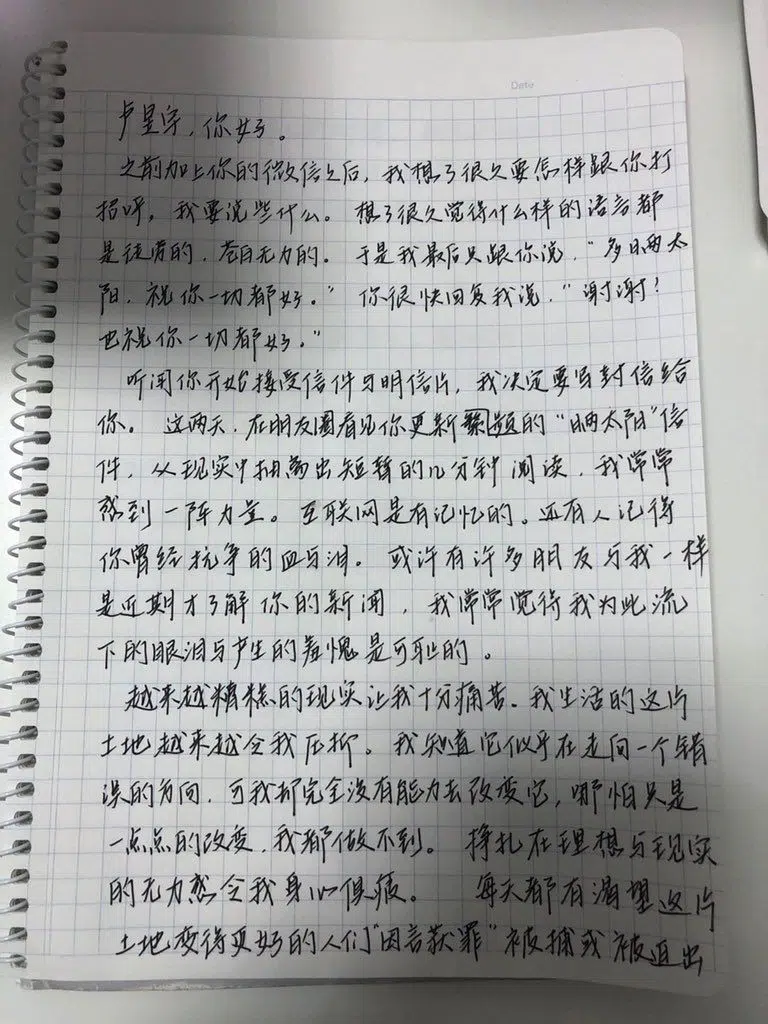 Date
卢昱宇，你好。
之前加上你的微信之后，我想了很久要怎样跟你打
招呼，我要说些什么。想了很久觉得什么样的语言都
是徒劳的，苍白无力的。于是我最后只跟你说，“多晒太
阳，祝你一切都好。”你很快回复我说，“谢谢！
也祝你一切都好。”
听闻你开始接受信件与明信片，我决定要写封信给
你。这两天，在朋友圈看见你更新的“晒太阳”信
件，从现实中抽离出短暂的几分钟阅读，我常常
感到一阵力量。互联网是有记忆的。还有人记得
你曾经抗争的血与泪。或许有许多朋友与我一样
是近期才了解你的新闻，我常常觉得我为此流
下的眼泪与产生的羞愧是可耻的。
越来越糟糕的现实让我十分痛苦。我生活的这片
土地越来越令我压抑。我知道它似乎在走向一个错
误的方向，可我却完全没有能力去改变它，哪怕只是
一点点的改变，我都做不到。挣扎在理想与现实
的无力感令我身心俱疲。每天都有渴望这片
土地变得更好的人们“因言获罪”被捕或被迫出